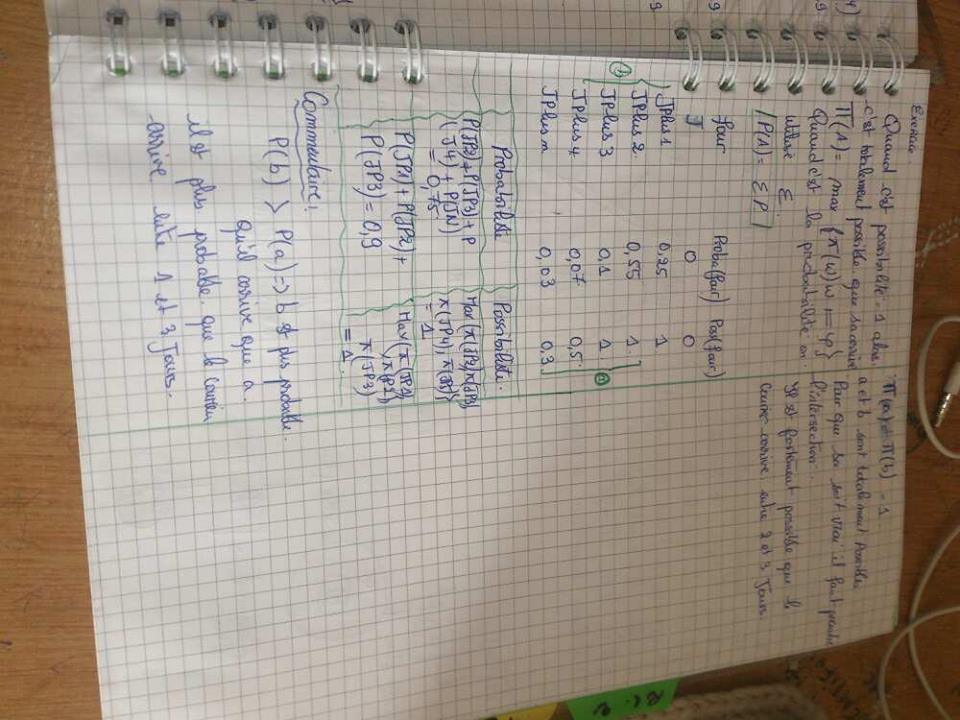 Exercice.
Quand c'est possibilité = 1 alors
c'est totalement possible que sa arrive
Π(A) = max {π(w) w ⊨ φ}
Quand c'est la probabilité on
utilise Σ.
P(A) = Σ P
Jour Proba(jour) Pos(jour)
J 0 0
JPlus 1 0,25 1
JPlus 2 0,55 1
JPlus 3 0,1 1
JPlus 4 0,07 0,5
JPlus n 0,03 0,3
Probabiliste Possibiliste.
P(JP2) + P(JP3) + P
(J4) + P(JN)
= 0,75
Max {π(JP2) π(JP3),
π(JP4), π(JP5)}
= 1
P(JP1) + P(JP2) +
P(JP3) = 0,9
Max (π(JP1)
, π(P2),
π(JP3)
= 1.
Commentaire:
P(b) > P(a) => b est plus probable
qu'il arrive que a.
il est plus probable que le courrier
arrive entre 1 et 3 Jours.
Π(a) et Π(b) = 1
a et b sont totalement Possible.
Pour que sa soit vrai il faut prendre
l'intersection.
Il est fortement possible que le
courier arrive entre 2 et 3 Jours.